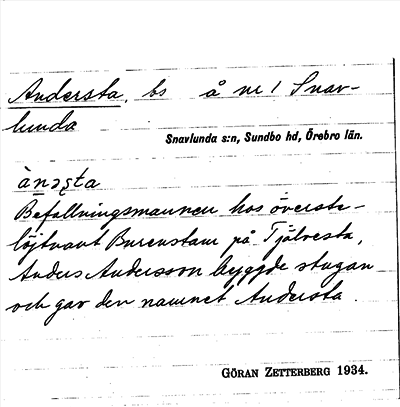 Andersta, bs å nr 1 Snav-
lunda
Snavlunda s:n, Sundbo hd, Örebro län.
ànəsta
Befallningsmannen hos överste-
löjtnant Burenstam på Tjälvesta,
Anders Andersson byggde stugan
och gav den namnet Andersta.
GÖRAN ZETTERBERG 1934.